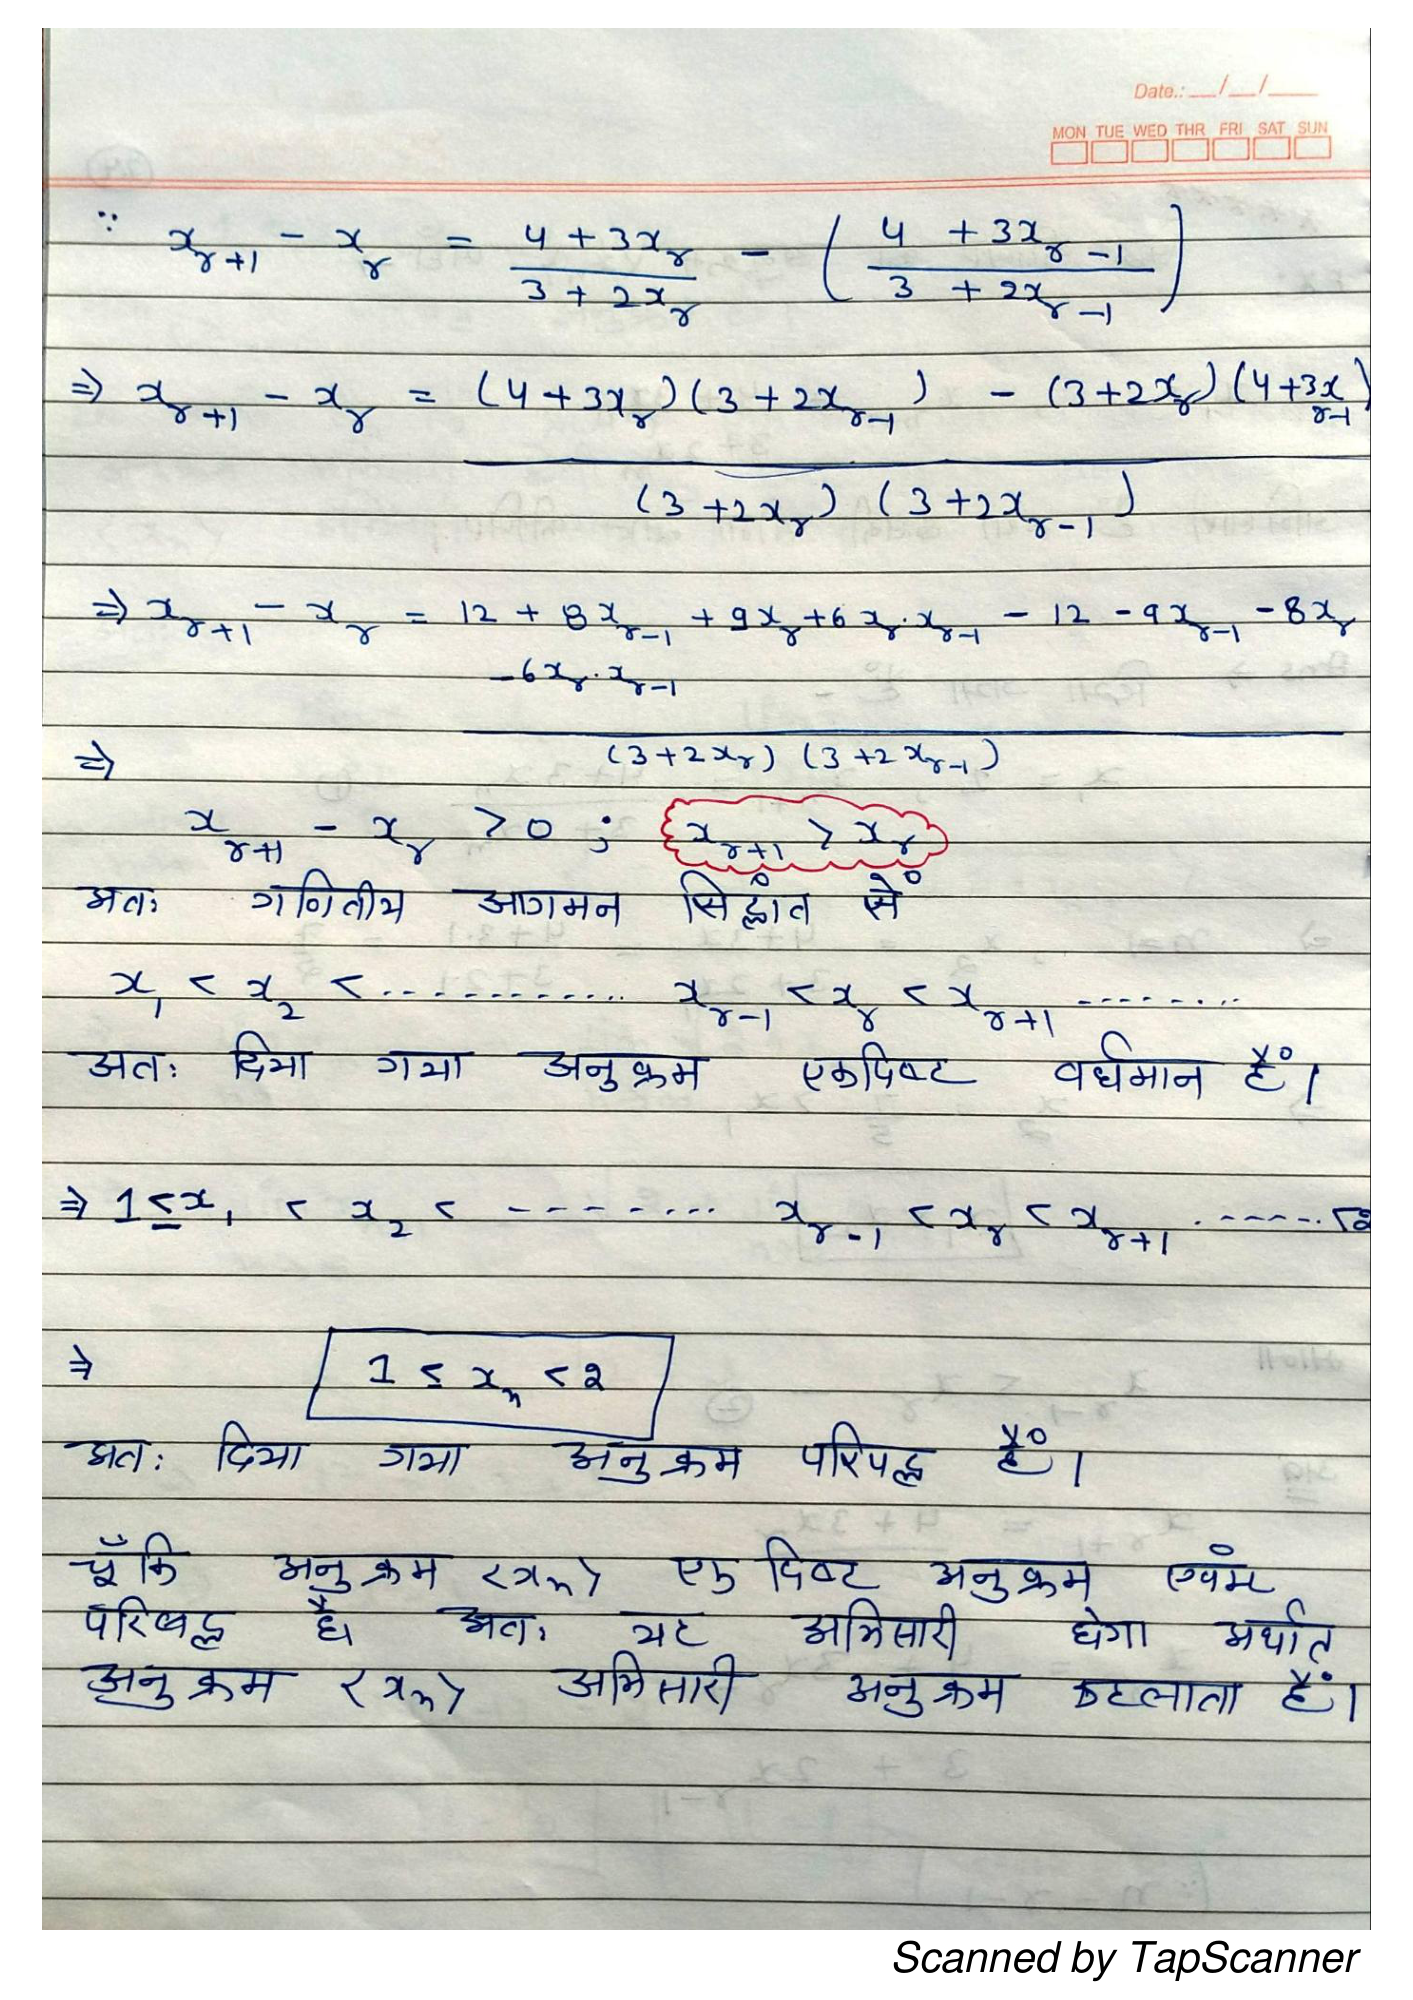 Date.: __/__/____
MON TUE WED THR FRI SAT SUN
∵ x_{r+1} - x_r = (4 + 3x_r)/(3 + 2x_r) - ((4 + 3x_{r-1})/(3 + 2x_{r-1}))
⇒ x_{r+1} - x_r = (4+3x_r)(3+2x_{r-1}) - (3+2x_r)(4+3x_{r-1})
(3+2x_r) (3+2x_{r-1})
⇒ x_{r+1} - x_r = 12 + 8x_{r-1} + 9x_r + 6x_r.x_{r-1} - 12 - 9x_{r-1} - 8x_r
-6x_r.x_{r-1}
⇒ (3+2x_r) (3+2x_{r-1})
x_{r+1} - x_r > 0 ; x_{r+1} > x_r
अतः गणितीय आगमन सिद्धांत सें
x_1 < x_2 < ............ x_{r-1} < x_r < x_{r+1} ........
अतः दिया गया अनुक्रम एकदिष्ट वर्धमान हैं।
⇒ 1 ≤ x_1 < x_2 < ........ x_{r-1} < x_r < x_{r+1} ...... < 2
⇒ 1 ≤ x_n < 2
अतः दिया गया अनुक्रम परिबद्ध हैं।
चूँकि अनुक्रम <x_n> एकदिष्ट अनुक्रम एवंम
परिबद्ध है। अतः यह अभिसारी होगा अर्थात
अनुक्रम <x_n> अभिसारी अनुक्रम कहलाता हैं।
Scanned by TapScanner